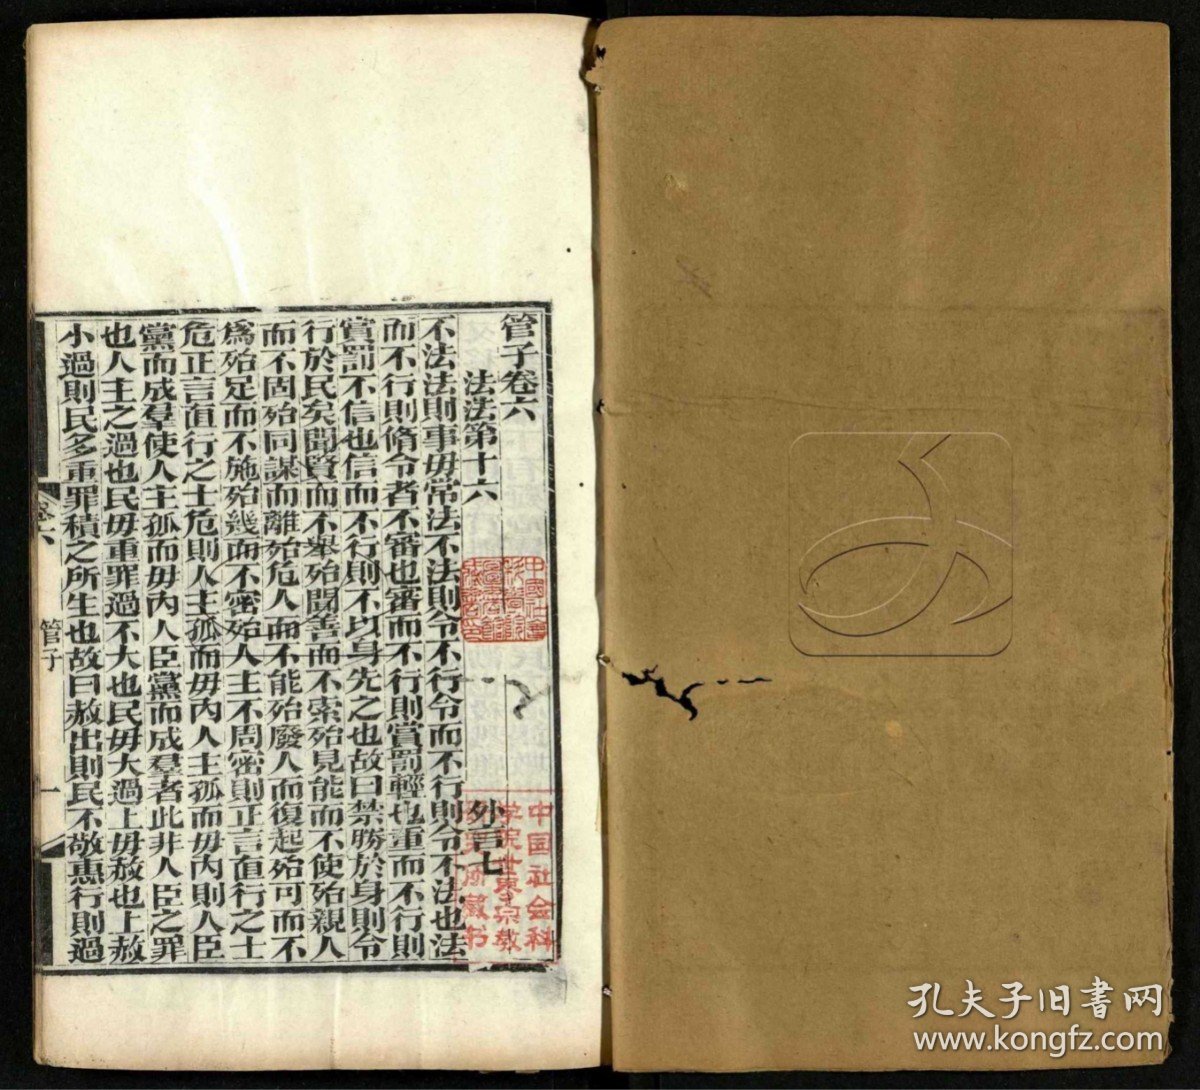 管子卷六
法法第十六
外言七
不法法則事毋常法不法則令不行令而不行則令不法也法
而不行則脩令者不審也審而不行則賞罰輕也重而不行則
賞罰不信也信而不行則不以身先之也故曰禁勝於身則令
行於民矣聞賢而不舉殆聞善而不索殆見能而不使殆親人
而不固殆同謀而離殆危人而不能殆廢人而復起殆可而不
爲殆足而不施殆幾而不密殆人主不周密則正言直行之士
危正言直行之士危則人主孤而毋內人主孤而毋內則人臣
黨而成羣使人主孤而毋內人臣黨而成羣者此非人臣之罪
也人主之過也民毋重罪過不大也民毋大過上毋赦也上赦
小過則民多重罪積之所生也故曰赦出則民不敬惠行則過
卷六
管子
一
中国社会科
学院世界宗教
研究所藏书
孔夫子旧书网
www.kongfz.com